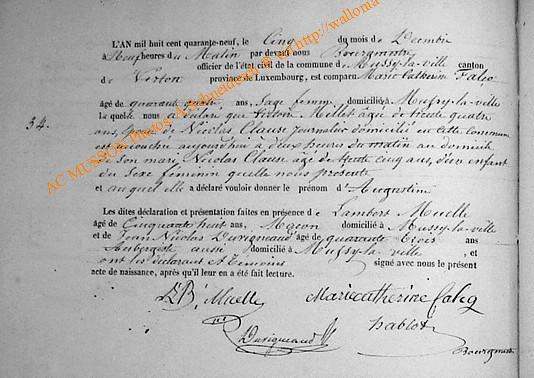 L'AN mil huit cent quarante-neuf, le Cinq du mois de Décembre
à Neuf heures du Matin par devant nous Bourgmestre
officier de l'état civil de la commune de Mussy-la-ville canton
de Virton province de Luxembourg, est comparu Marie Catherine Falcq
âgé de quarante quatre ans, Sage femme domicilié à Mussy-la-ville
34.
Laquelle nous a déclaré que Millet âgée de trente quatre
ans, épouse de Nicolas Clause journalier domicilié en cette Commune
est accouchée aujourd'hui à deux heures du matin au domicile
de son mari Nicolas Clause âgé de trente cinq ans, d'un enfant
du Sexe féminin qu'elle nous présente
et auquel elle a déclaré vouloir donner le prénom d'Augustine
Les dites déclaration et présentation faites en présence de Lambert Muelle
âgé de Cinquante huit ans, Maçon domicilié à Mussy-la-ville
et de Jean Nicolas Duvigneaud âgé de quarante trois ans
Aubergiste aussi domicilié à Mussy-la-ville, et
ont les déclarant et Témoins signé avec nous le présent
acte de naissance, après qu'il leur en a été fait lecture.
Muelle Marie catherine falcq
Duvigneaud hablot
Bourgmestre
AC MUSSON Photos: A.Schneider http://wallonia